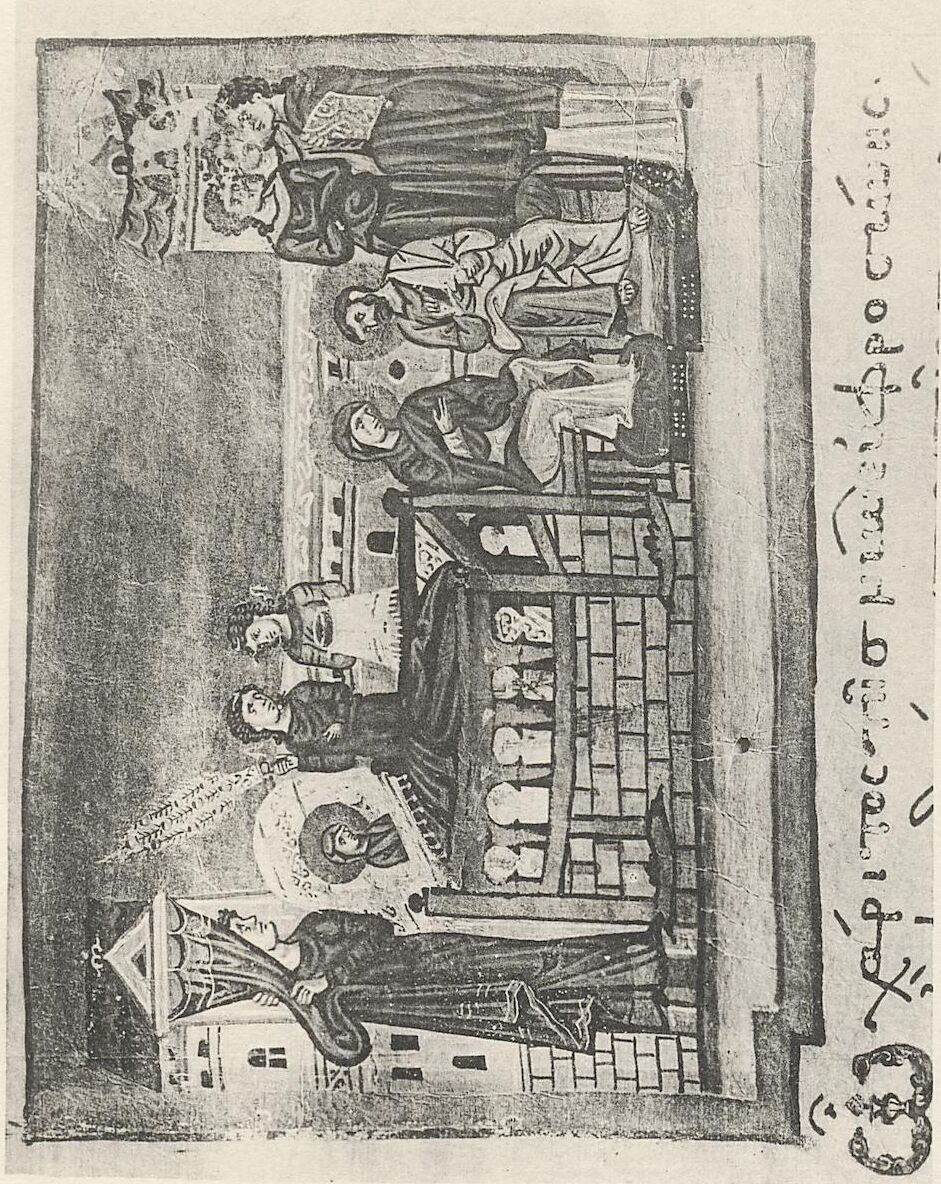 Ὢ χάριτος τῆς ἡμῶν εὐφροσύνης.